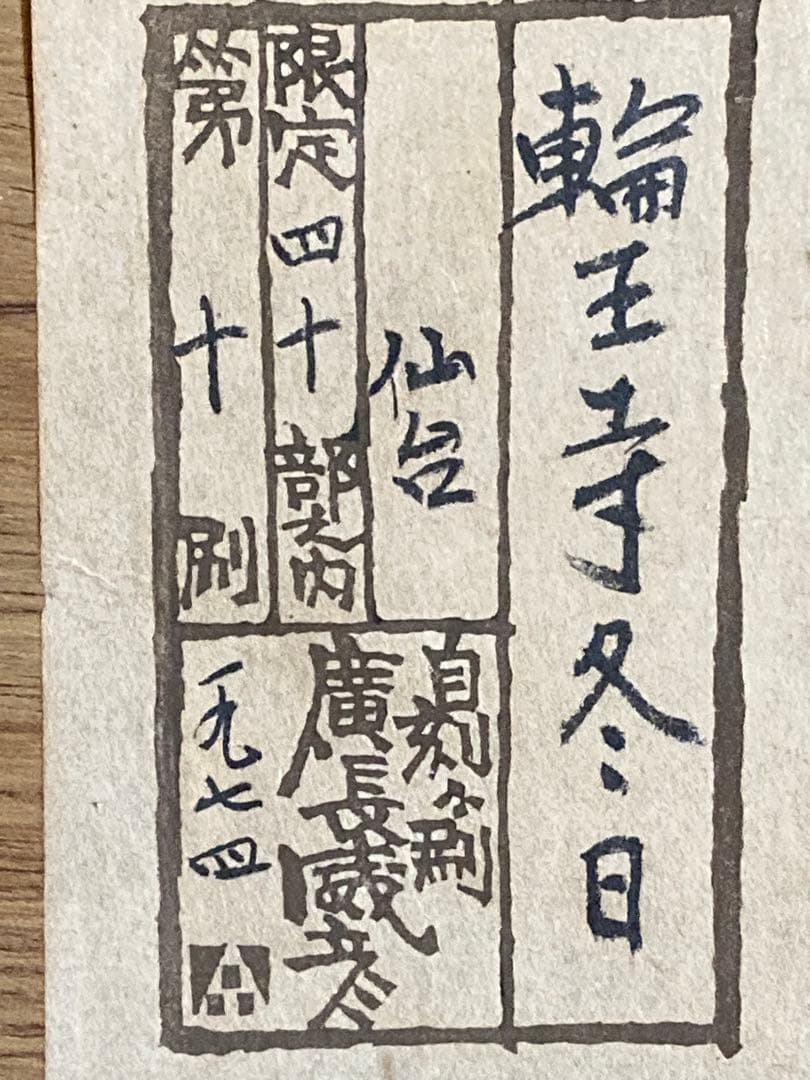 輪王寺冬日
仙台
限定四十部之内
第十刷
自刻々刷
廣長威彦
一九七四